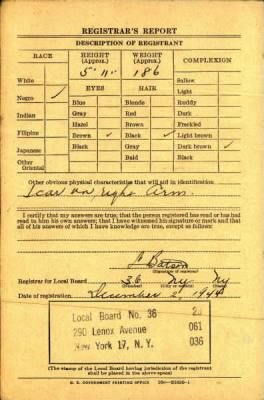 REGISTRAR'S REPORT
DESCRIPTION OF REGISTRANT
RACE HEIGHT (Approx.) WEIGHT (Approx.) COMPLEXION
5' 11" 186
White Sallow
EYES HAIR Light
Negro ✓ Blue Blonde Ruddy
Indian Gray Red Dark
Hazel Brown Freckled
Filipino Brown ✓ Black ✓ Light brown
Japanese Black Gray Dark brown ✓
Other Oriental Bald Black
Other obvious physical characteristics that will aid in identification
Scar on right Arm.
I certify that my answers are true; that the person registered has read or has had
read to him his own answers; that I have witnessed his signature or mark and that
all of his answers of which I have knowledge are true, except as follows:
(Signature of registrar)
Registrar for Local Board 36 Ny Ny
(Number) (City or county) (State)
Date of registration December 2, 194
Local Board No. 36 20
290 Lenox Avenue 061
New York 17, N. Y. 036
(The stamp of the Local Board having jurisdiction of the registrant
shall be placed in the above space)
U. S. GOVERNMENT PRINTING OFFICE